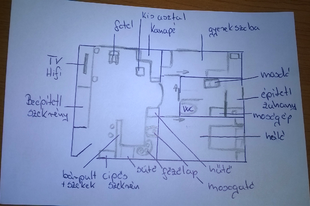 kisasztal
fotel
kanapé
gyerekszoba
TV
Hifi
mosdó
Beépített
szekrény
épített
zuhany
WC
mosógép
háló
beépült cipős
+ székek szekrény
sütő
főzőlap
hűtő
mosogató